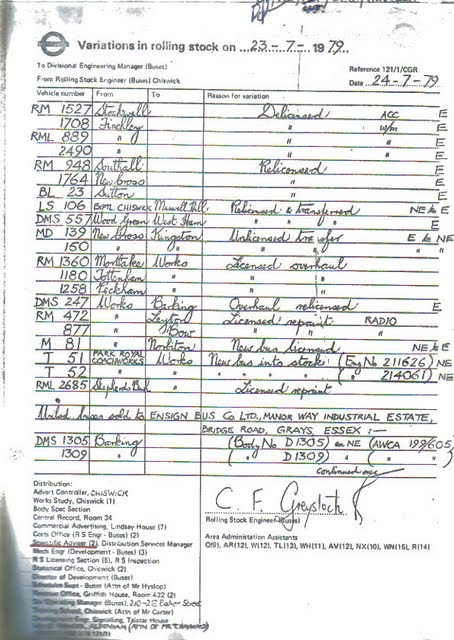 Variations in rolling stock on ... 23 - 7 - 1979.
To Divisional Engineering Manager (Buses)
Reference 121/1/CGR
From Rolling Stock Engineer (Buses) Chiswick
Date 24-7-79
Vehicle number From To Reason for variation
RM 1527 Stockwell Delicensed ACC E
1708 Finchley " w/m E
RML 889 " " " E
2490 " " " E
RM 948 Southall Relicensed E
1764 New Cross " E
BL 23 Sutton " E
LS 106 BOTTL CHISWICK Muswell Hill Relicensed & transferred NE to E
DMS 557 Wood Green West Ham " " "
MD 139 New Cross Kingston Unlicensed transfer E to NE
150 " " " " "
RM 1360 Mortlake Works Licensed overhaul
1180 Tottenham " " "
1258 Peckham " " "
DMS 247 Works Barking Overhaul relicensed E
RM 472 " Leyton Licensed repaint RADIO
877 " Bow " "
M 81 " Norbiton New bus licensed NE to E
T 51 PARK ROYAL COACHWORKS Works New bus into stock (Eng No 211626) NE
T 52 " " " ( " 214061) NE
RML 2685 Shepherds Bush " Licensed repaint
United buses sold to ENSIGN BUS CO LTD., MANOR WAY INDUSTRIAL ESTATE,
BRIDGE ROAD, GRAYS, ESSEX :-
DMS 1305 Barking (Body No D1305) on NE (AWCA 199/605)
1309 " ( " D1309) " ( " " )
continued over
Distribution:
Advert Controller, CHISWICK
Works Study, Chiswick (1)
Body Spec Section
Central Record, Room 34
Commercial Advertising, Lindsay House (7)
Certs Office (R S Engr - Buses) (2)
Scientific Adviser (2), Distribution Services Manager
Mech Engr (Development - Buses) (3)
R S Licensing Section (5), R S Inspection
Statistical Office, Chiswick (2)
Director of Development (Buses)
Schedules Supt - Buses (Attn of Mr Hyslop)
Revenue Office, Griffith House, Room 432 (2)
Operating Manager (Buses), 210-212 Baker Street
Training School, Chiswick (Attn of Mr Carter)
Development Engr, Signalling, Telstar House
C. F. Greystock
Rolling Stock Engineer (Buses)
Area Administation Assistants
Q(9), AR(12), W(12), TL(13), WH(11), AV(12), NX(10), WN(15), R(14)